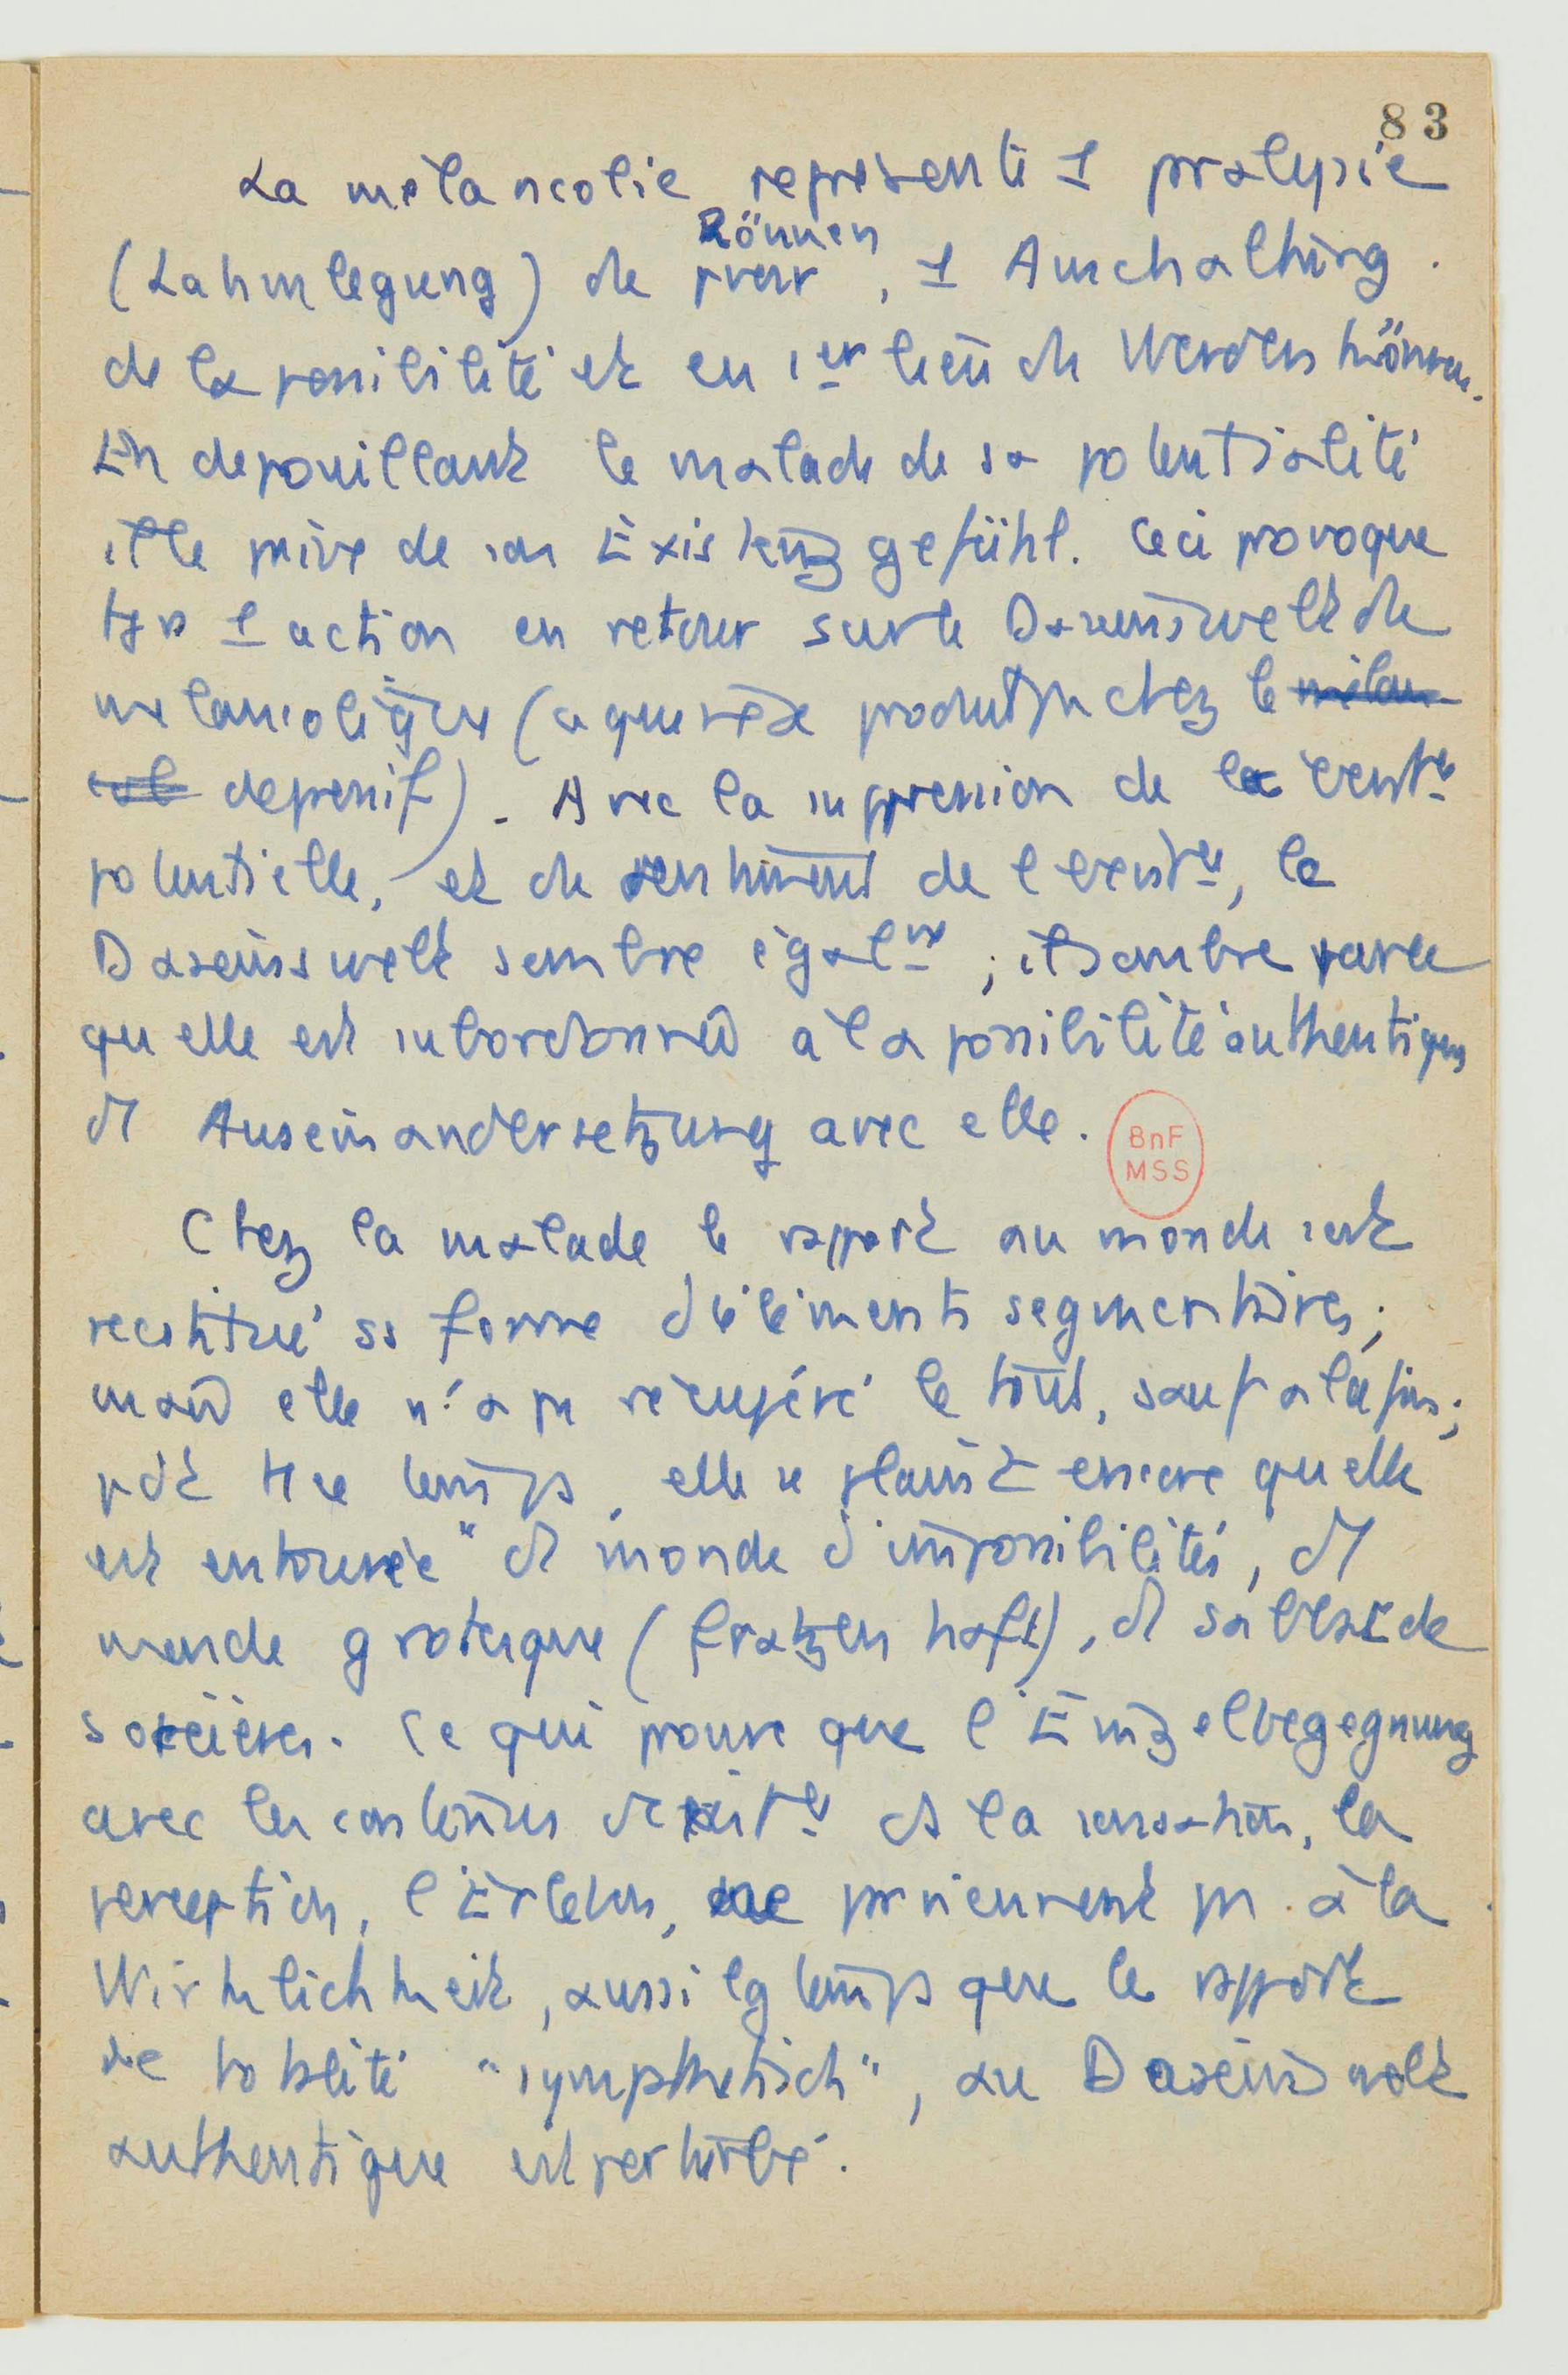 83
La mélancolie représente 1 paralysie
Können
(Lahmlegung) du pvoir, 1 Ausschaltung
de la possibilité et en 1er lieu du Werdenkönnen.
En depouillant le malade de sa potentialité
il le prive de son Existenzgefühl. Ceci provoque
tjrs 1 action en retour sur le Daseinswelt du
melancolique (ce qui se produit chez le melan
col depressif). Avec la suppression de la
potentielle, et du sentiment de l
Daseinswelt sombre égalmt ; il sombre parce
qu elle est subordonnée à la possibilité authentique
d1 Auseinandersetzung avec elle.
BnF
MSS
Chez la malade le rapport au monde s'est
restitué ss forme d'éléments segmentaires;
mais elle n'a pu récupéré le tout, sauf a la fin;
pdt tt ce temps, elle se plaint encore quelle
est entourée "d1 monde d'impossibilités, d1
monde grotesque (fratzenhaft), d1 sabbat de
sorcières. Ce qui prouve que l'Einzelbegegnung
avec les contenus ds la sensation, la
perception, l'Erleben, ne parviennent pas à la
Wirklichkeit, aussi lgtemps que le rapport
de totalité "sympathetisch", au Daseinswelt
authentique est perturbé.